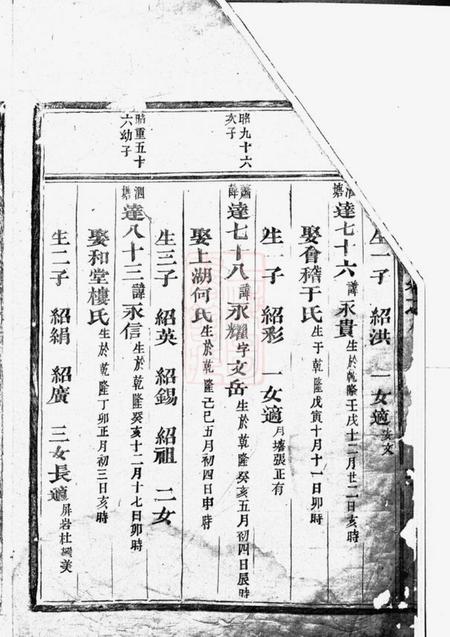 生一子 紹洪 一女適
泗塘達七十六諱永貴生於乾隆壬戌十二月廿二日亥時
娶會稽于氏生于乾隆戊寅十月十一日卯時
昭九十六次子
生一子 紹彩 一女適月塘張正有
達七十八諱永耀字文岳生於乾隆癸亥五月初四日辰時
娶上湖何氏生於乾隆己巳五月初四日申時
生三子 紹英 紹錫 紹祖 二女
昭重五十六幼子
泗塘達八十三諱永信生於乾隆癸亥十二月十七日卯時
娶和堂樓氏生於乾隆丁卯正月初三日亥時
生二子 紹絹 紹廣 三女長適屏岩杜